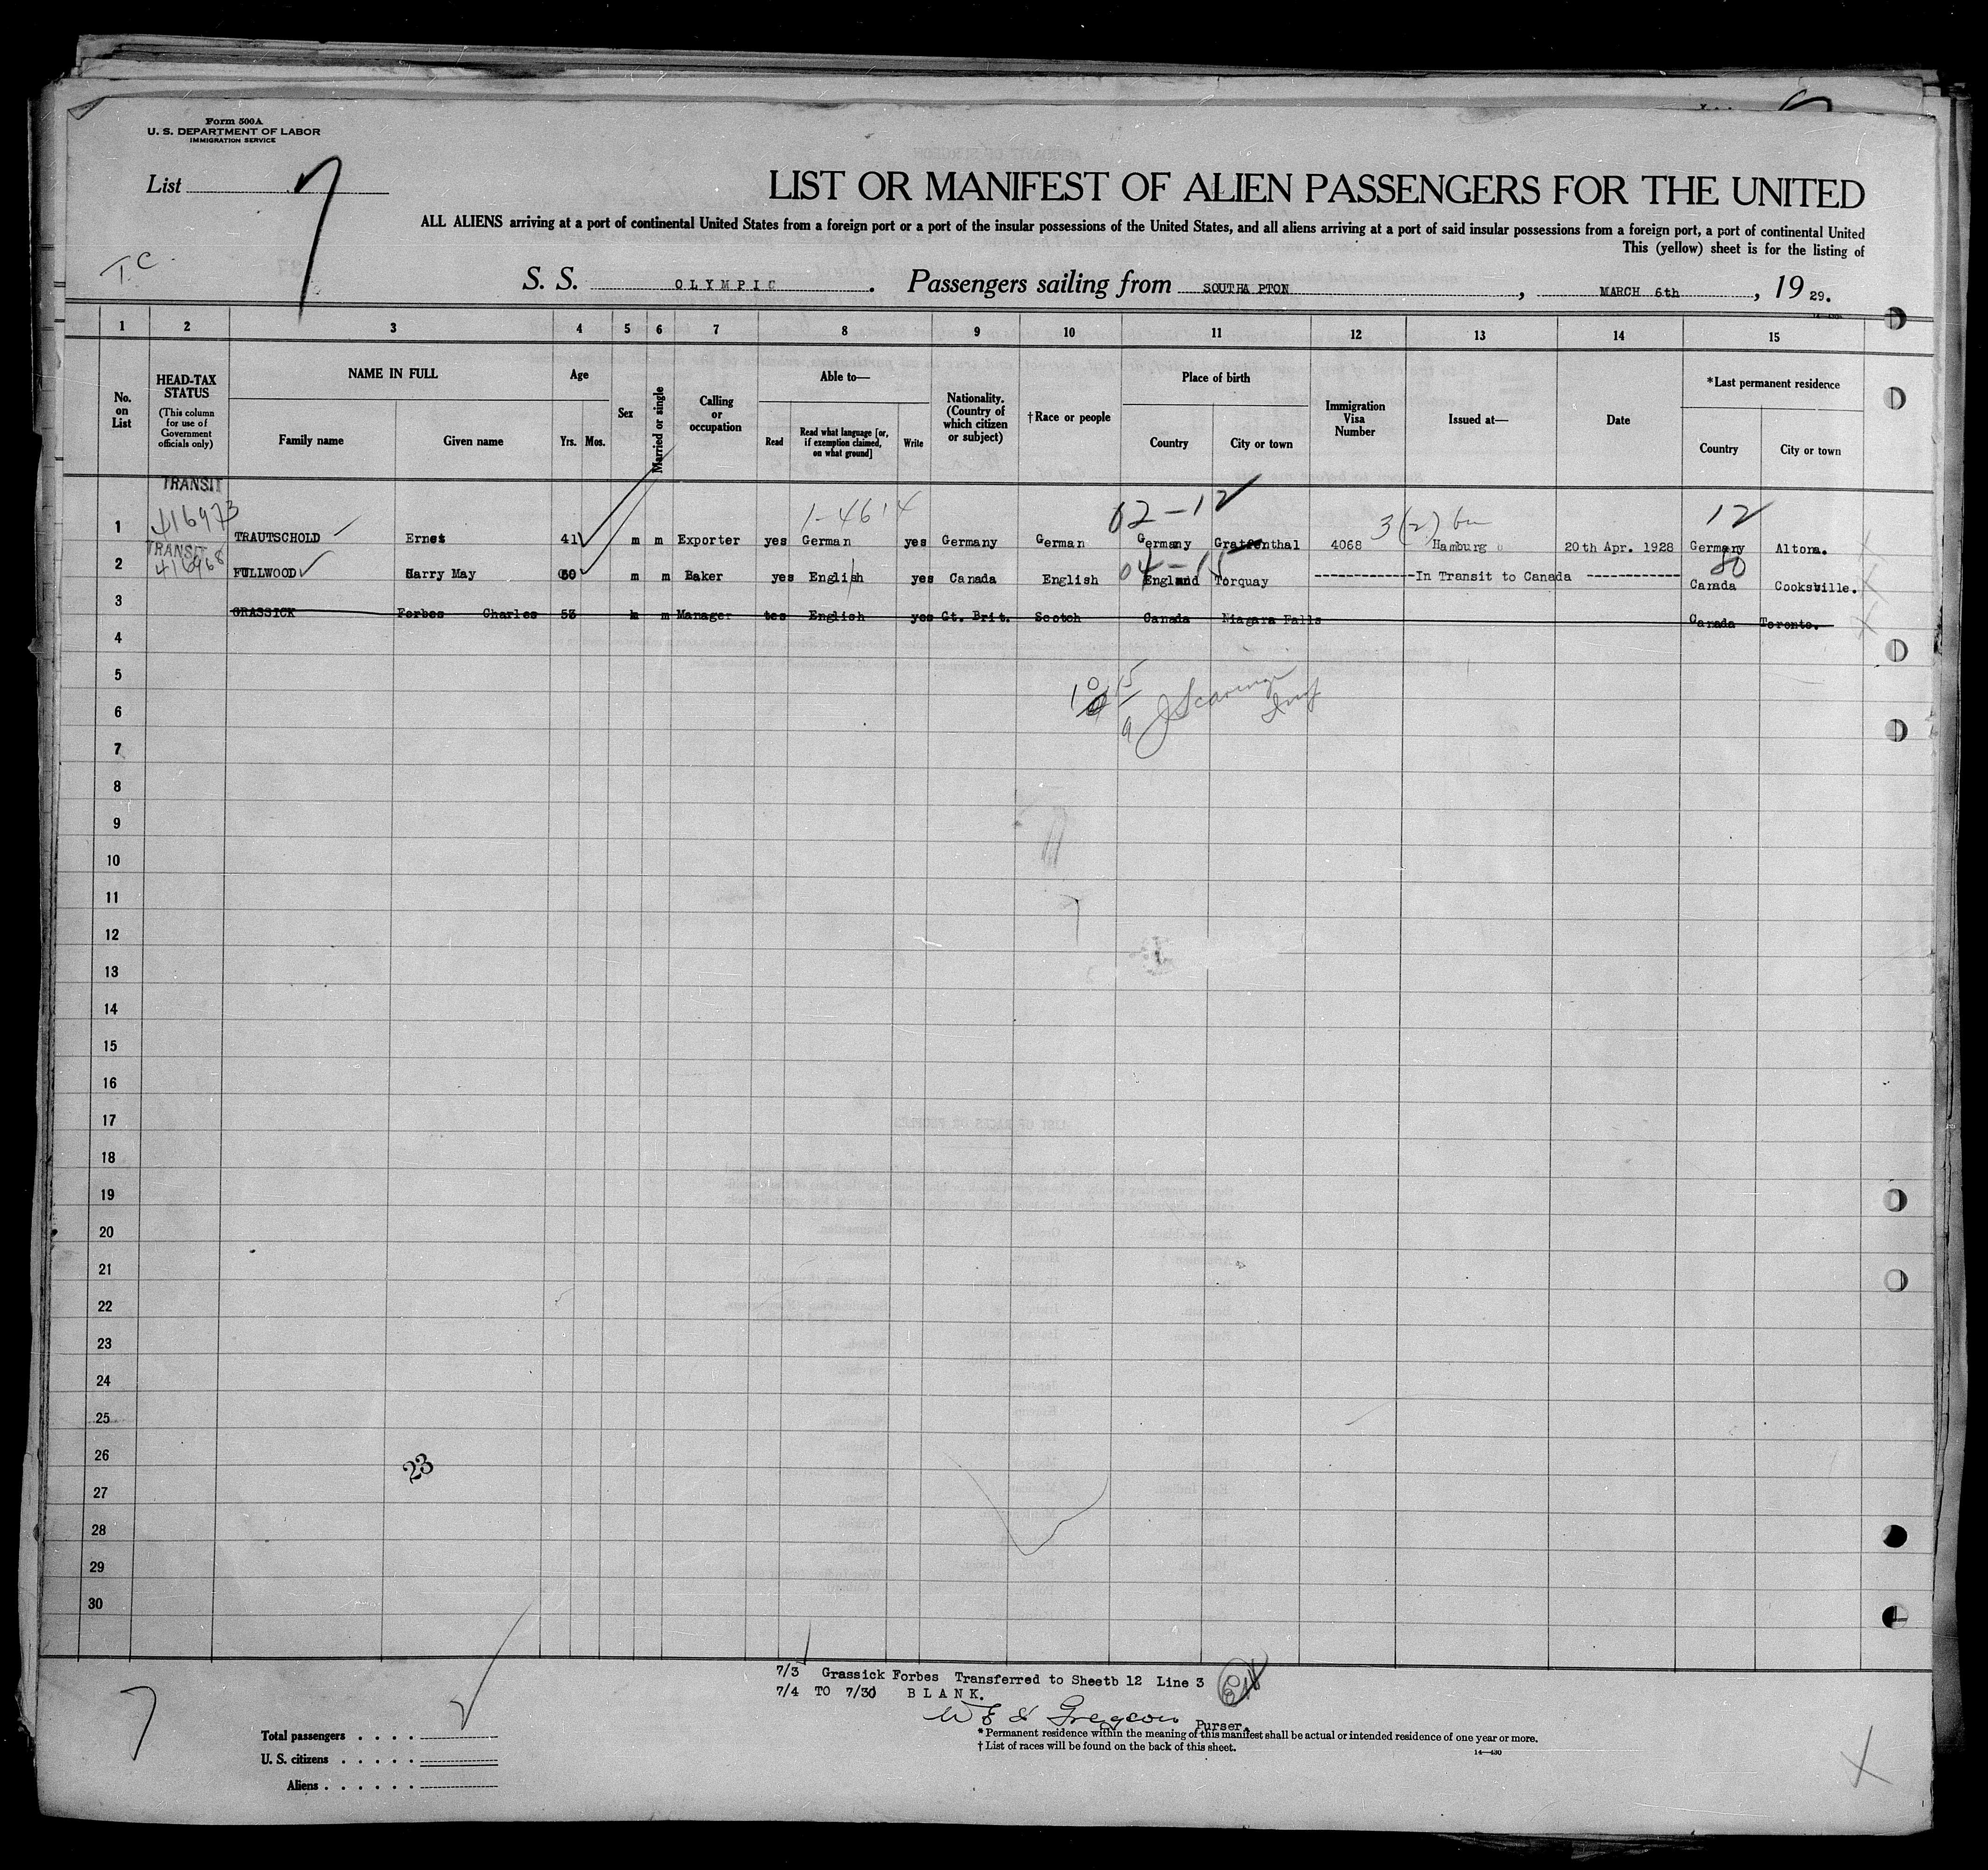 Form 500A
U. S. DEPARTMENT OF LABOR
IMMIGRATION SERVICE
List 7
LIST OR MANIFEST OF ALIEN PASSENGERS FOR THE UNITED
ALL ALIENS arriving at a port of continental United States from a foreign port or a port of the insular possessions of the United States, and all aliens arriving at a port of said insular possessions from a foreign port, a port of continental United
This (yellow) sheet is for the listing of
T.C.
S. S. OLYMPIC. Passengers sailing from SOUTHA PTON, MARCH 6th, 19 29.
1 2 3 4 5 6 7 8 9 10 11 12 13 14 15
No. on List
HEAD-TAX STATUS
(This column for use of Government officials only)
NAME IN FULL
Family name Given name
Age
Yrs. Mos.
Sex
Married or single
Calling or occupation
Able to—
Read
Read what language [or, if exemption claimed, on what ground]
Write
Nationality. (Country of which citizen or subject)
†Race or people
Place of birth
Country City or town
Immigration Visa Number
Issued at—
Date
*Last permanent residence
Country City or town
TRANSIT
416973
1-4614 02-12 3(2) 12
1 TRAUTSCHOLD Ernst 41 m m Exporter yes German yes Germany German Germany Gratfenthal 4068 Hamburg 20th Apr. 1928 Germany Altona.
TRANSIT
416968
04-15 80
2 FULLWOOD Harry May 60 m m Baker yes English yes Canada English England Torquay -------------In Transit to Canada ------------ Canada Cooksville.
3 GRASSICK Forbes Charles 53 m m Manager tes English yes Gt. Brit. Scotch Canada Niagara Falls Canada Toronto.
4
5
6
7
8
9
10
11
12
13
14
15
16
17
18
19
20
21
22
23
24
25
26
23
27
28
29
30
7/3 Grassick Forbes Transferred to Sheetb 12 Line 3
7/4 TO 7/30 BLANK.
Purser.
7
Total passengers . . . .
U. S. citizens . . . . .
Aliens . . . . . .
* Permanent residence within the meaning of this manifest shall be actual or intended residence of one year or more.
† List of races will be found on the back of this sheet.
14—430